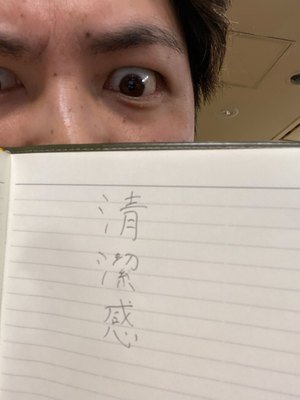 清潔感